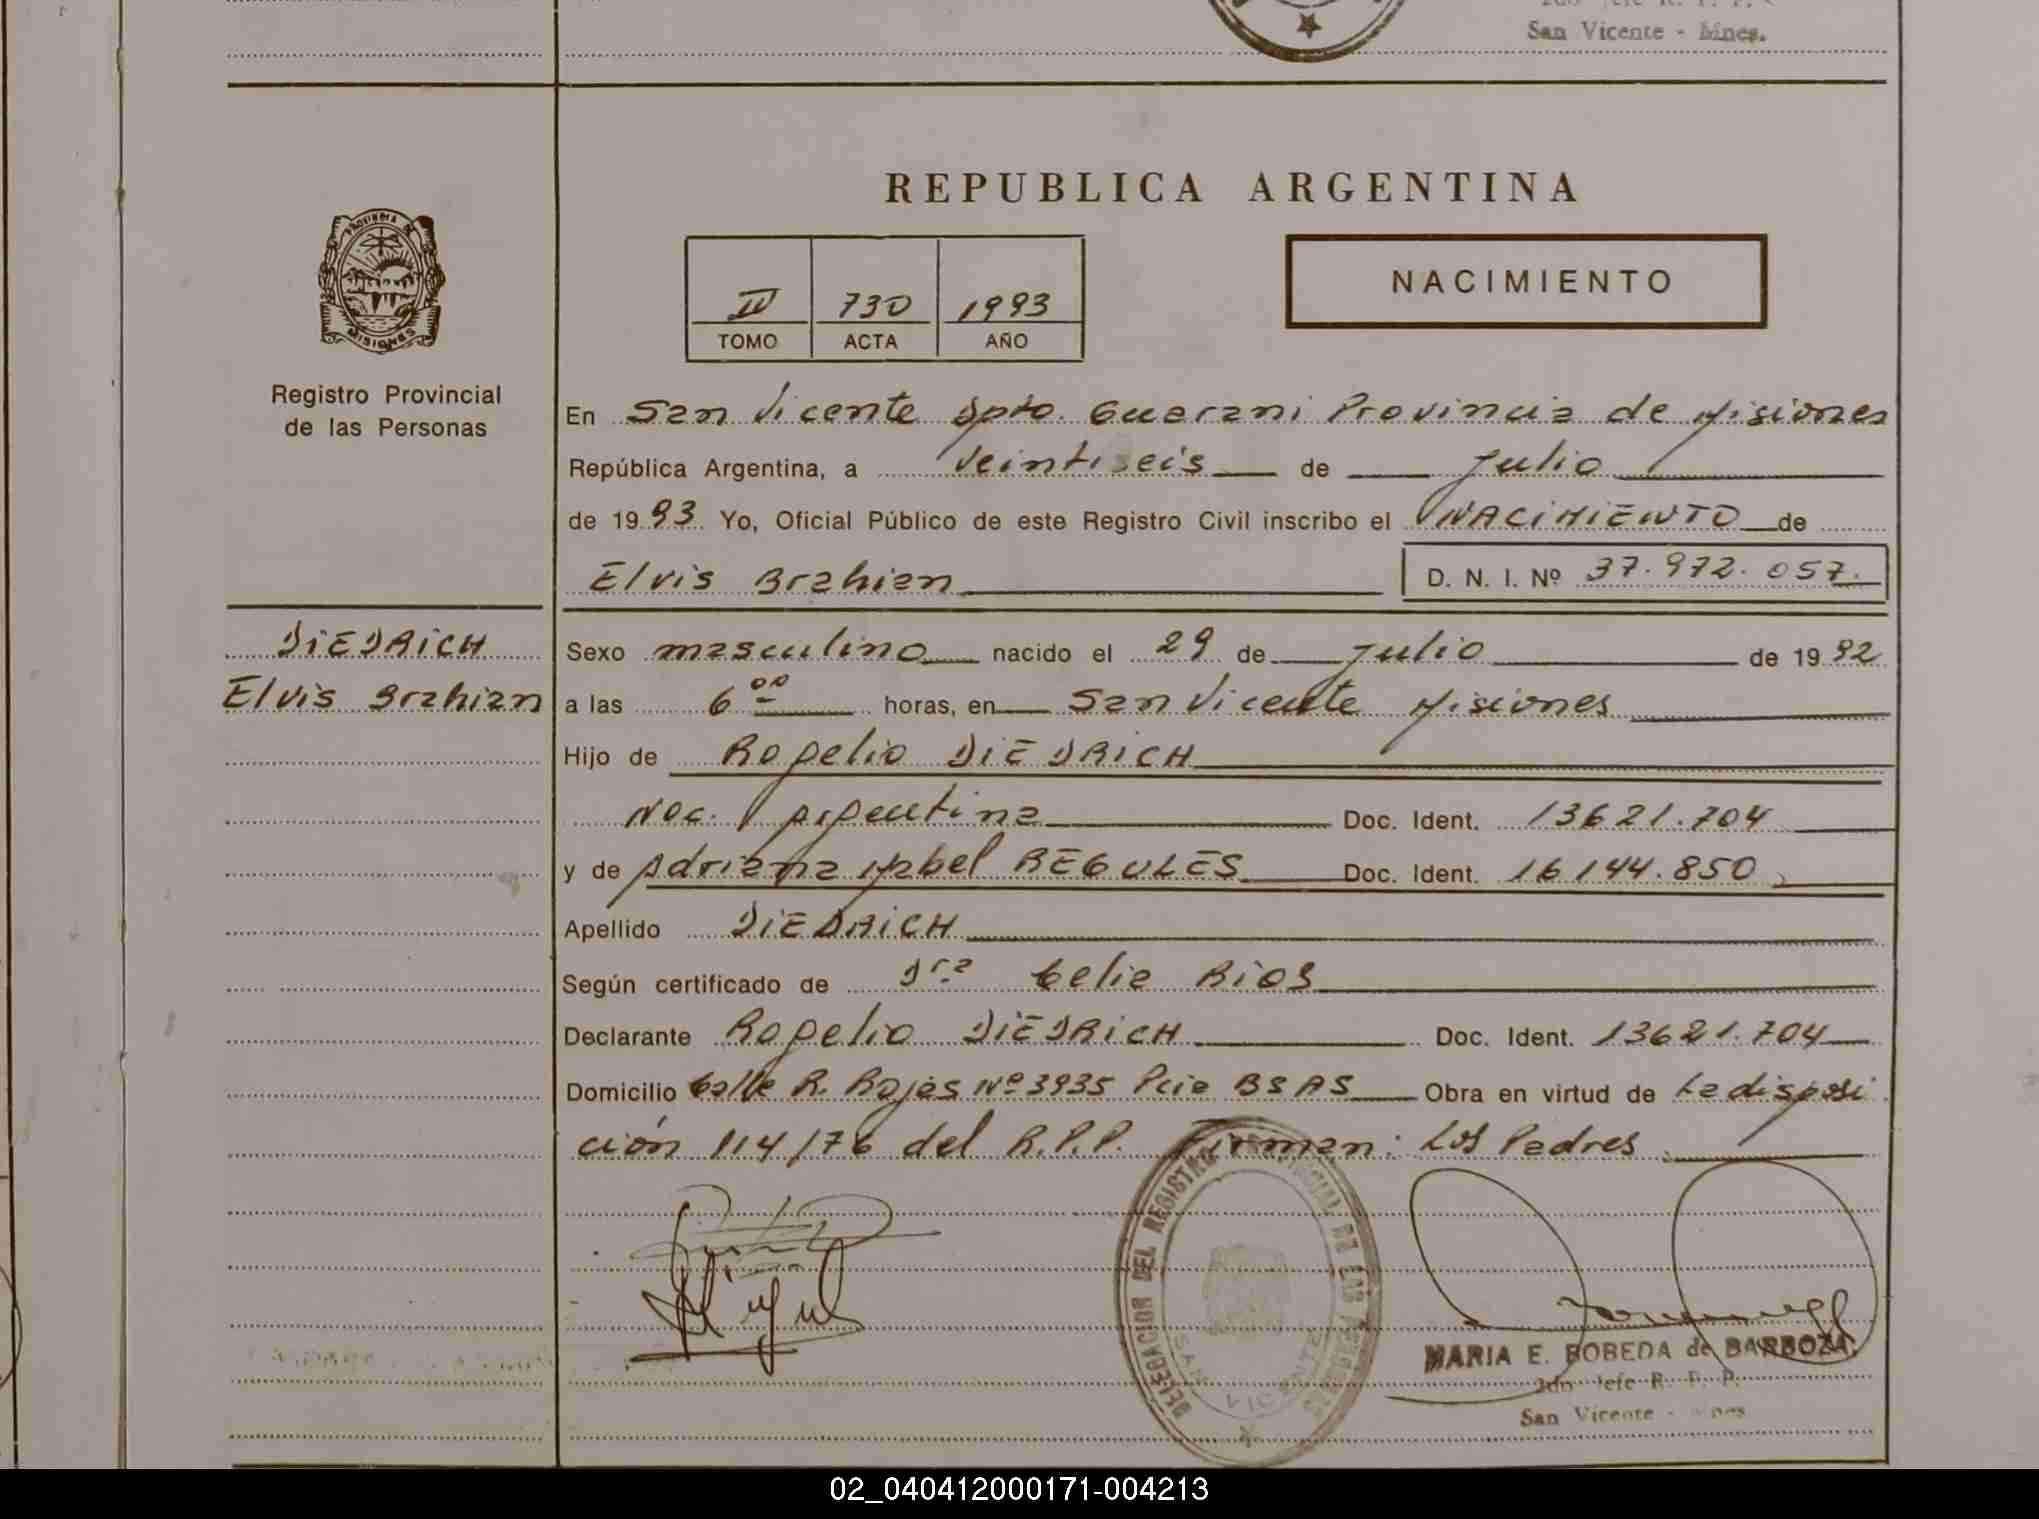 2do Jefe R. P. P.
San Vicente - Mnes.
REPUBLICA ARGENTINA
PROVINCIA DE
MISIONES
NACIMIENTO
IV 730 1993
TOMO ACTA AÑO
Registro Provincial
de las Personas
En San Vicente Dpto. Guarani Provincia de Misiones
República Argentina, a veintiseis de Julio
de 1993 Yo, Oficial Público de este Registro Civil inscribo el NACIMIENTO de
Elvis Brahian D. N. I. Nº 37.972.057.
DIEDRICH
Elvis Brahian
Sexo masculino nacido el 29 de Julio de 1992
a las 6 00 horas, en San Vicente Misiones
Hijo de Rogelio DIEDRICH
Nac. Argentina Doc. Ident. 13621.704
y de Adriana Mabel REGULES Doc. Ident. 16144.850
Apellido DIEDRICH
Según certificado de Dra Celia RIOS
Declarante Rogelio DIEDRICH Doc. Ident. 13621.704
Domicilio Calle R. Rojas Nº 3935 Pcia BS AS Obra en virtud de La disposi
ción 114/76 del R.P.P. Firman: Los Padres
DELEGACION DEL REGISTRO PROVINCIAL DE LAS PERSONAS
SAN VICENTE
MARIA E. BOBEDA de BARBOZA
2do Jefe R. P. P.
San Vicente - Mnes.
02_040412000171-004213